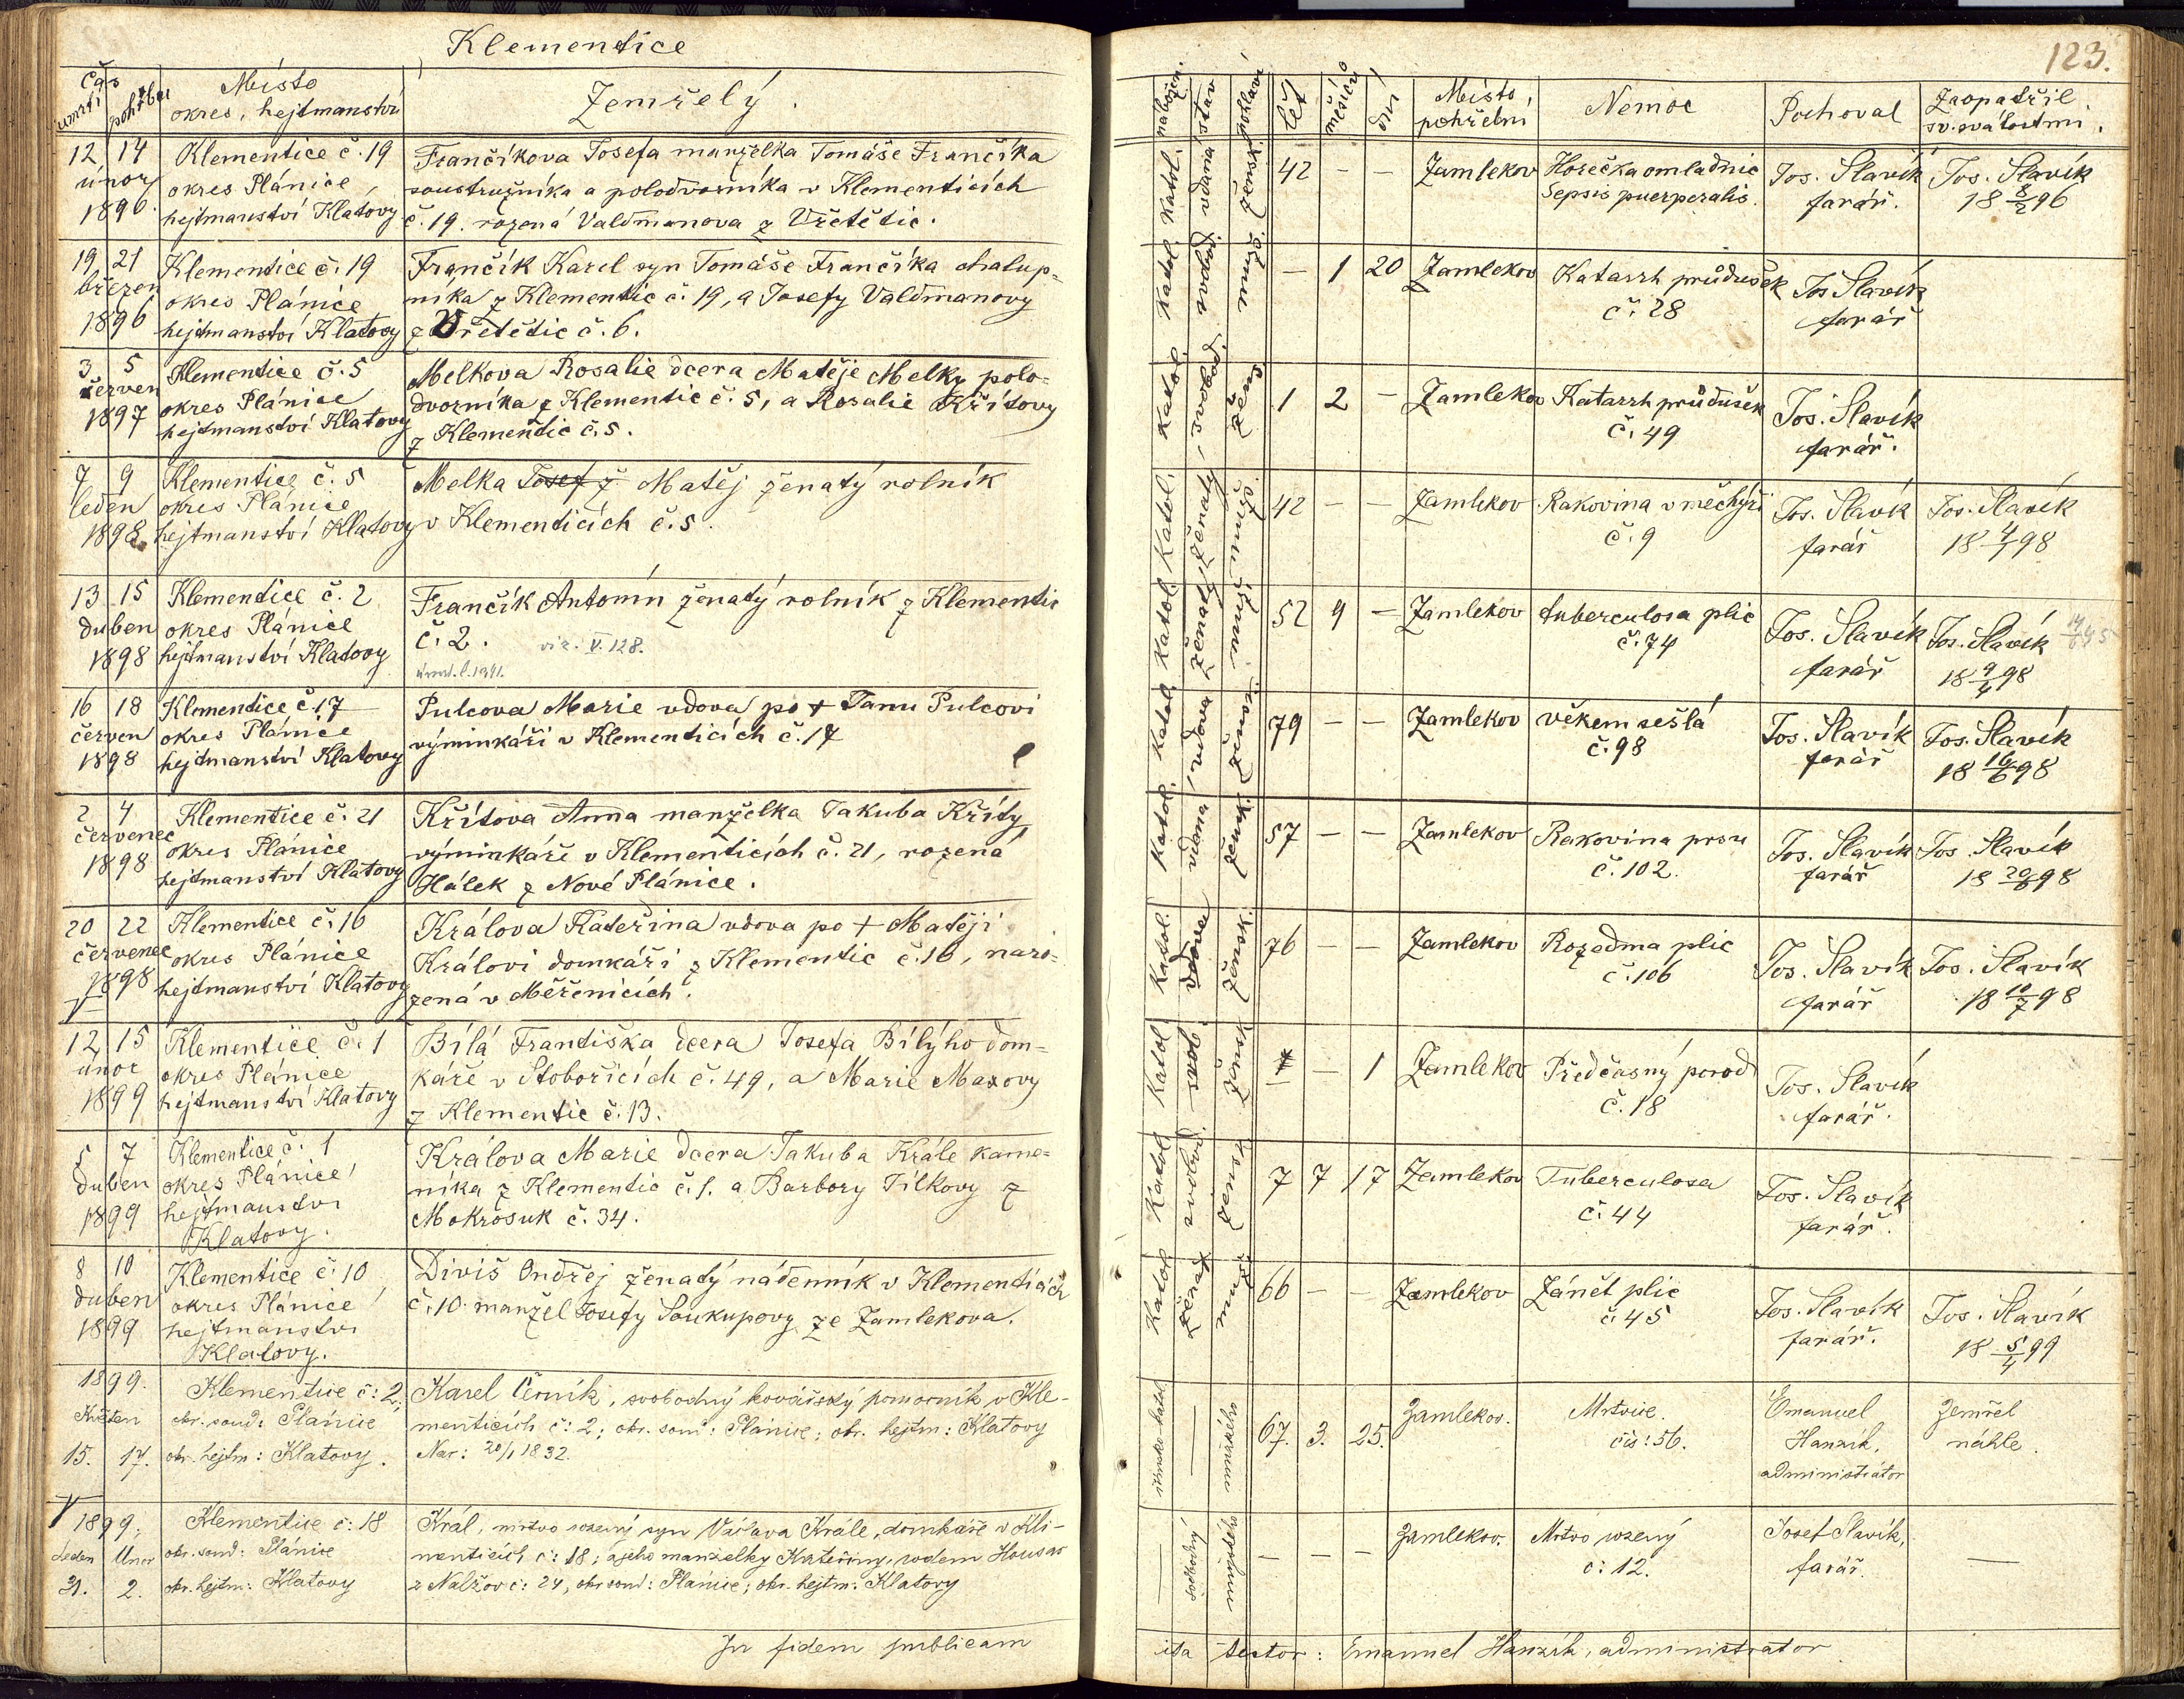 Klementice
123.
Čas
úmrtí pohřbu
Místo
okres, hejtmanství
Zemřelý.
nábožen. stav pohlaví let měsíců dní
Místo pohřební
Nemoc
Pochoval
Zaopatřil sv. svátostmi.
12 14
únor
1896
Klementice č. 19
okres Plánice
hejtmanství Klatovy
Frančíkova Josefa manželka Tomáše Frančíka
soustružníka a polodvorníka v Klementicích
č. 19. rozená Valdmanova z Vřetětic.
Katol. vdaná žensk. 42 – – Zamlekov
Horečka omladnic
Sepsis puerperalis.
Jos. Slavík
farář.
Jos. Slavík
18 8/2 96
19 21
březen
1896
Klementice č. 19
okres Plánice
hejtmanství Klatovy
Frančík Karel syn Tomáše Frančíka chalup=
níka z Klementic č. 19, a Josefy Valdmanovy
z Vřetětic č. 6.
Katol. svobod. – 1 20 Zamlekov
Katarrh průdušek
č. 28
Jos Slavík
farář
3 5
červen
1897
Klementice č. 5
okres Plánice
hejtmanství Klatovy
Melkova Rosalie dcera Matěje Melky polo=
dvorníka z Klementic č. 5, a Rosalie Křítovy
z Klementic č. 5.
Katol. svobod. žen. 1 2 – Zamlekov
Katarrh průdušek
č. 49
Jos. Slavík
farář.
7 9
leden
1898
Klementice č. 5
okres Plánice
hejtmanství Klatovy
Melka Josef ž Matěj ženatý rolník
v Klementicích č. 5.
Katol. ženatý 42 – – Zamlekov
Rakovina v měchýři
č. 9
Jos. Slavík
farář
Jos. Slavík
18 4/1 98
13 15
duben
1898
Klementice č. 2
okres Plánice
hejtmanství Klatovy
Frančík Antonín ženatý rolník z Klementic
č. 2. viz. V. 128.
Katol. ženatý 52 9 – Zamlekov
tuberculosa plic
č. 74
Jos. Slavík
farář
Jos. Slavík
18 9/4 98
16 18
červen
1898
Klementice č. 17
okres Plánice
hejtmanství Klatovy
Pulcova Marie vdova po + Janu Pulcovi
výminkáři v Klementicích č. 17
Katol. vdova žensk. 79 – – Zamlekov
věkem sešlá
č. 98
Jos. Slavík
farář
Jos. Slavík
18 16/6 98
2 4
červenec
1898
Klementice č. 21
okres Plánice
hejtmanství Klatovy
Křítova Anna manželka Jakuba Kříty
výminkáře v Klementicích č. 21, rozená
Hálek z Nové Plánice.
Katol. vdaná žensk. 57 – – Zamlekov
Rakovina prsu
č. 102.
Jos. Slavík
farář
Jos. Slavík
18 20/6 98
20 22
červenec
1898
Klementice č. 16
okres Plánice
hejtmanství Klatovy
Králova Kateřina vdova po + Matěji
Královi domkáři z Klementic č. 16, naro=
zená v Měřenicích.
Katol. vdova žensk. 76 – – Zamlekov
Rozedma plic
č. 106
Jos. Slavík
farář
Jos. Slavík
18 10/7 98
12 15
únor
1899
Klementice č. 1
okres Plánice
hejtmanství Klatovy
Bílá Františka dcera Josefa Bílýho dom=
káře v Stobořicích č. 49, a Marie Maxovy
z Klementic č. 13.
Katol svob. žensk. – – 1 Zamlekov
Předčasný porod
č. 18
Jos. Slavík
farář.
5 7
duben
1899
Klementice č. 1
okres Plánice
hejtmanství
Klatovy.
Králova Marie dcera Jakuba Krále kame=
níka z Klementic č. 1. a Barbory Jílkovy z
Mokrosuk č. 34.
Katol svobod. žensk. 7 7 17 Zamlekov
Tuberculosa
č. 44
Jos. Slavík
farář.
8 10
duben
1899
Klementice č. 10
okres Plánice
hejtmanství
Klatovy.
Diviš Ondřej ženatý nádenník v Klementicích
č. 10. manžel Josefy Soukupovy ze Zamlekova.
Katol ženat. muž. 66 – – Zamlekov
Zánět plic
č. 45
Jos. Slavík
farář.
Jos. Slavík
18 5/4 99
1899.
Květen
15. 17.
Klementice č: 2.
okr. soud: Plánice
okr. hejtm: Klatovy.
Karel Černík, svobodný kovářský pomocník v Kle-
menticích č: 2; okr. soud: Plánice; okr. hejtm: Klatovy
Nar: 20/1 1832.
mužské 67. 3. 25. Zamlekov.
Mrtvice.
čís: 56.
Emanuel
Hanzík,
administrátor
Zemřel
náhle.
1899;
Leden Únor
31. 2.
Klementice č: 18
okr. soud: Plánice
okr. hejtm: Klatovy
Král, mrtvo rozený syn Václava Krále, domkáře v Kle-
menticích č: 18; a jeho manželky Kateřiny, rodem Housar
z Nalžov č: 24, okr. soud: Plánice; okr. hejtm: Klatovy
– svobodný mužské – – – Zamlekov.
Mrtvo rozený
č: 12.
Josef Slavík,
farář.
–
In fidem publicam
ita testor: Emanuel Hanzík, administrator